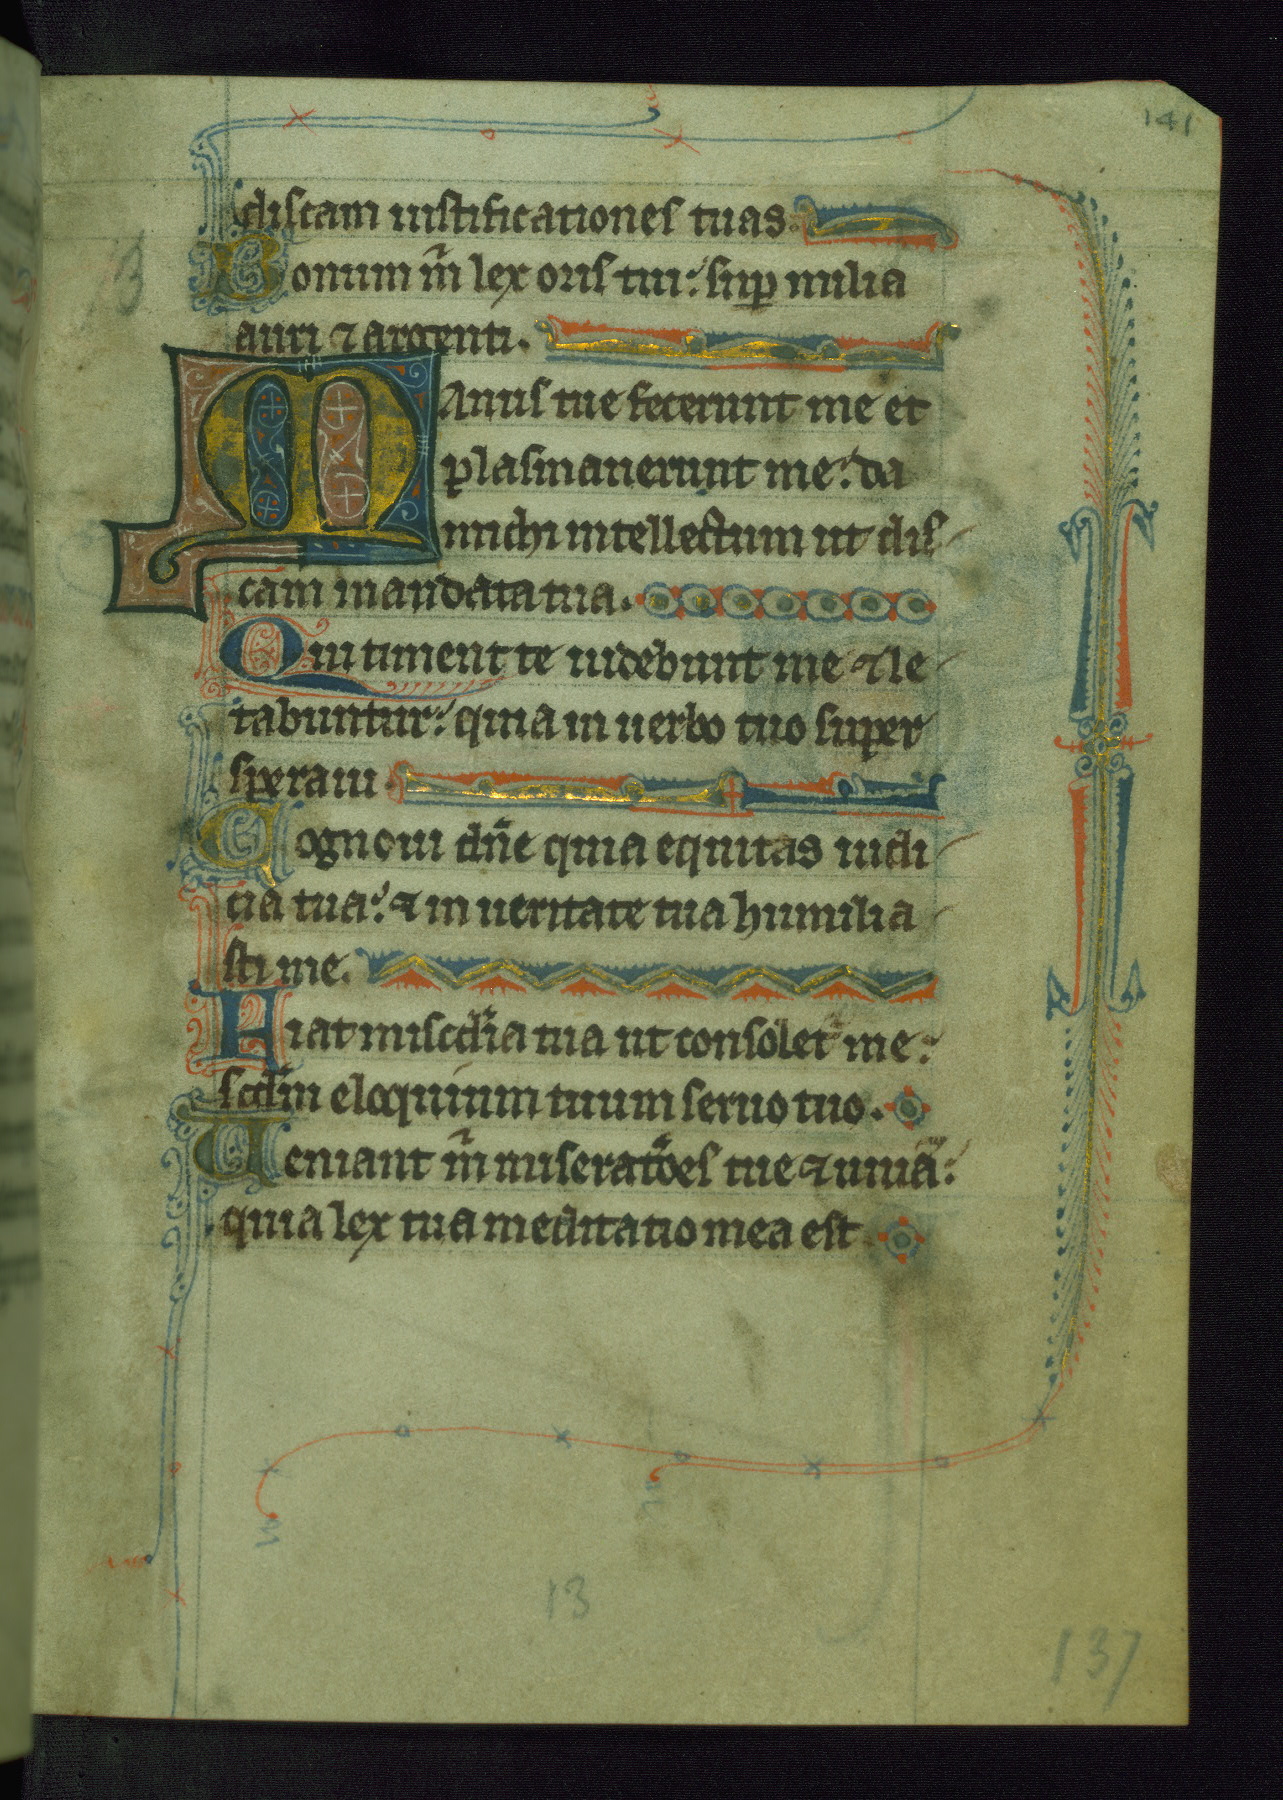 141
discam iustificationes tuas.
Bonum m̄ lex oris tui: suꝑ milia
3
auri ⁊ argenti.
Manus tue fecerunt me et
plasmauerunt me: da
michi intellectum ut dis
cam mandata tua.
Qui timent te uidebunt me ⁊ le
tabuntur: quia in uerbo tuo super
speraui.
Cognoui dn̄e quia equitas iudi
cia tua: ⁊ in ueritate tua humilia
sti me.
Fiat miscd̄ia tua ut consolet̄ me:
scd̄m eloquium tuum seruo tuo.
Ueniant m̄ miserat̄oes tue ⁊ uiuā:
quia lex tua meditatio mea est
13
137